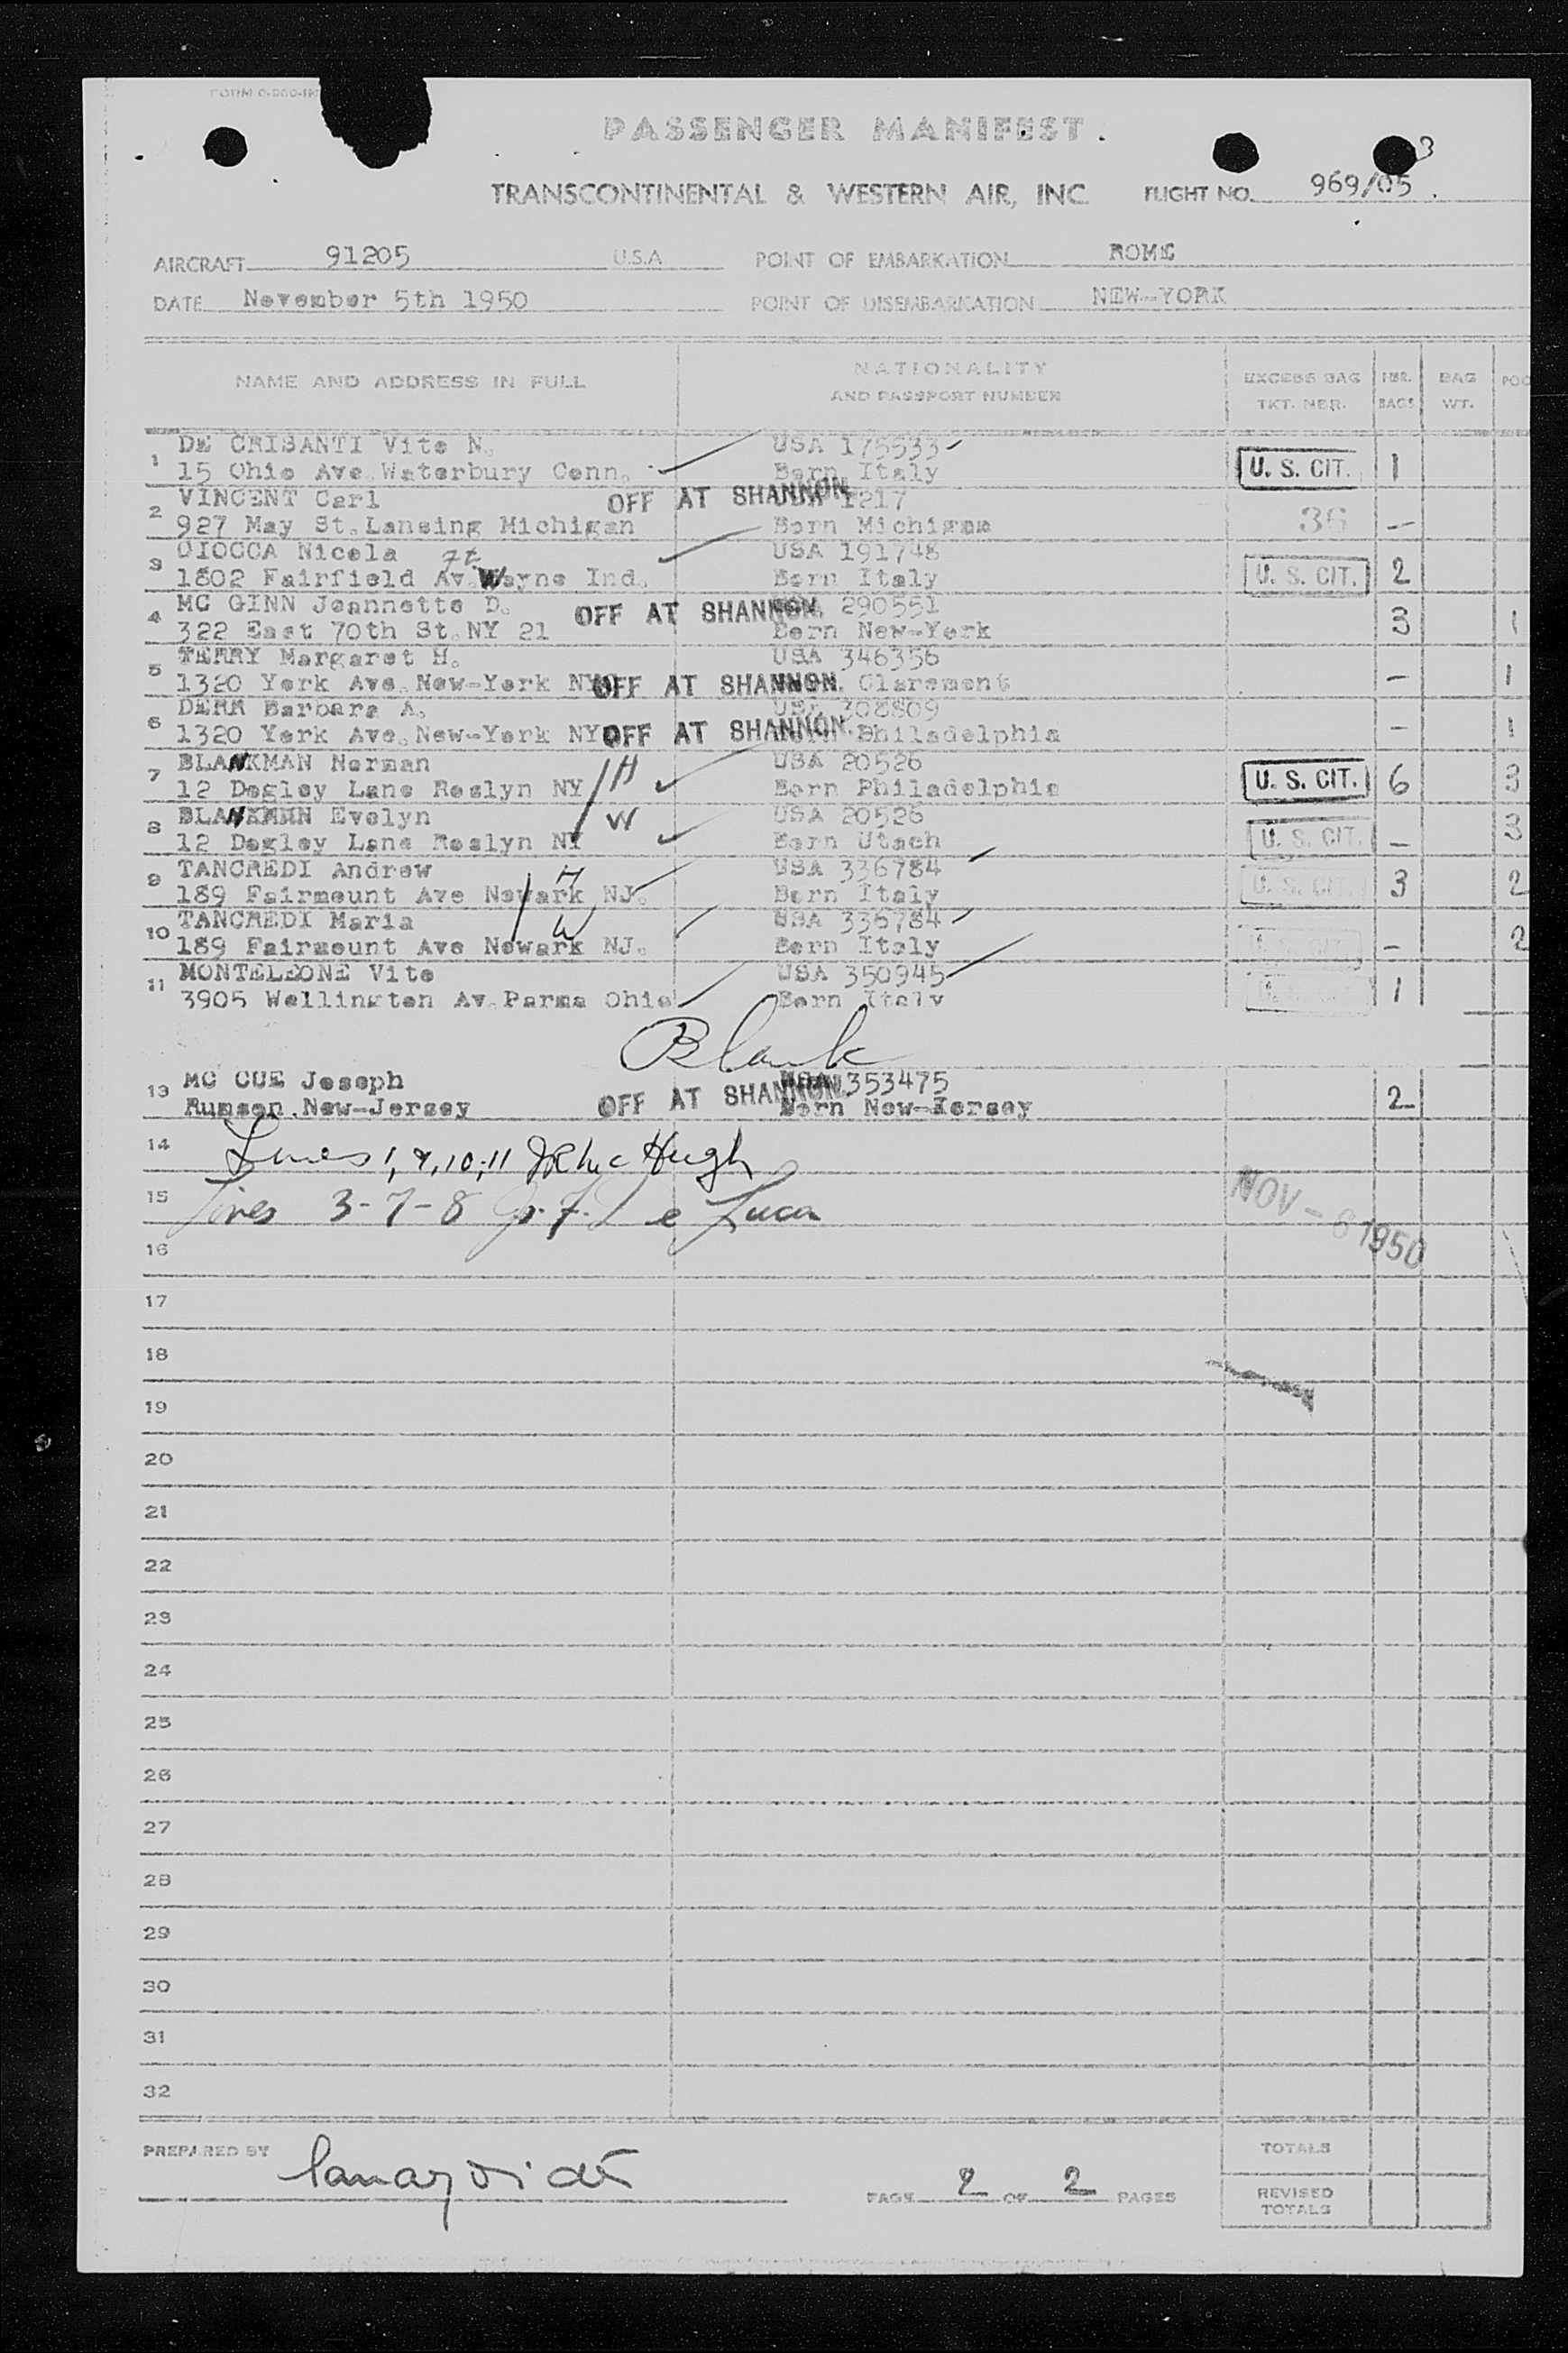 PASSENGER MANIFEST.
3
TRANSCONTINENTAL & WESTERN AIR, INC FLIGHT NO. 969/05.
AIRCRAFT 91205 U.S.A POINT OF EMBARKATION ROME
DATE November 5th 1950 POINT OF DISEMBARKATION NEW-YORK
NAME AND ADDRESS IN FULL NATIONALITY AND PASSPORT NUMBER EXCESS BAG TKT. NBR. NBR. BAGS BAG WT.
DE CRISANTI Vito N. USA 175533
1 15 Ohio Ave.Waterbury Conn. Born Italy U. S. CIT. 1
VINCENT Carl OFF AT SHANNON 1217
2 927 May St.Lansing Michigan Born Michigan 36 —
CIOCCA Nicola USA 191748
3 1802 Fairfield Av. Wayne Ind. Born Italy U. S. CIT. 2
MC GINN Jeannette D. OFF AT SHANNON. 290551
4 322 East 70th St.NY 21 Born New-York 3 1
TERRY Margaret H. USA 346356
5 1320 York Ave.New-York NY OFF AT SHANNON. Claremont — 1
DERR Barbara A. USA 308809
6 1320 York Ave.New-York NY OFF AT SHANNON. Philadelphia — 1
BLANKMAN Norman H USA 20526
7 12 Dogley Lane Roslyn NY Born Philadelphia U. S. CIT. 6 3
BLANKMAN Evelyn W USA 20526
8 12 Dogley Lane Roslyn NY Born Utach U. S. CIT. — 3
TANCREDI Andrew H USA 336784
9 189 Fairmount Ave Newark NJ. Born Italy U. S. CIT. 3 2
TANCREDI Maria W USA 336784
10 189 Fairmount Ave Newark NJ. Born Italy U. S. CIT. — 2
MONTELEONE Vito USA 350945
11 3905 Wellington Av.Parma Ohio Born Italy 1
Blank
MC CUE Joseph USA 353475
13 Rumson.New-Jersey OFF AT SHANNON Born New-Jersey 2
14 Lines 1, 9, 10, 11 JR McHugh
15 Lines 3-7-8 J. F. De Luca
NOV - 6 1950
16
17
18
19
20
21
22
23
24
25
26
27
28
29
30
31
32
PREPARED BY
PAGE 2 OF 2 PAGES
TOTALS
REVISED TOTALS